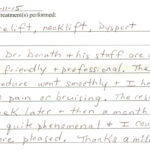 -11-15
reatment(s) performed:
elift, necklift, Dysport
Dr. + his staff are
friendly + professional. The
edure went smoothly + I h
pain or bruising. The res
eek later + then a month
quite phenomenal + I cou
ore pleased. Thanks a mil